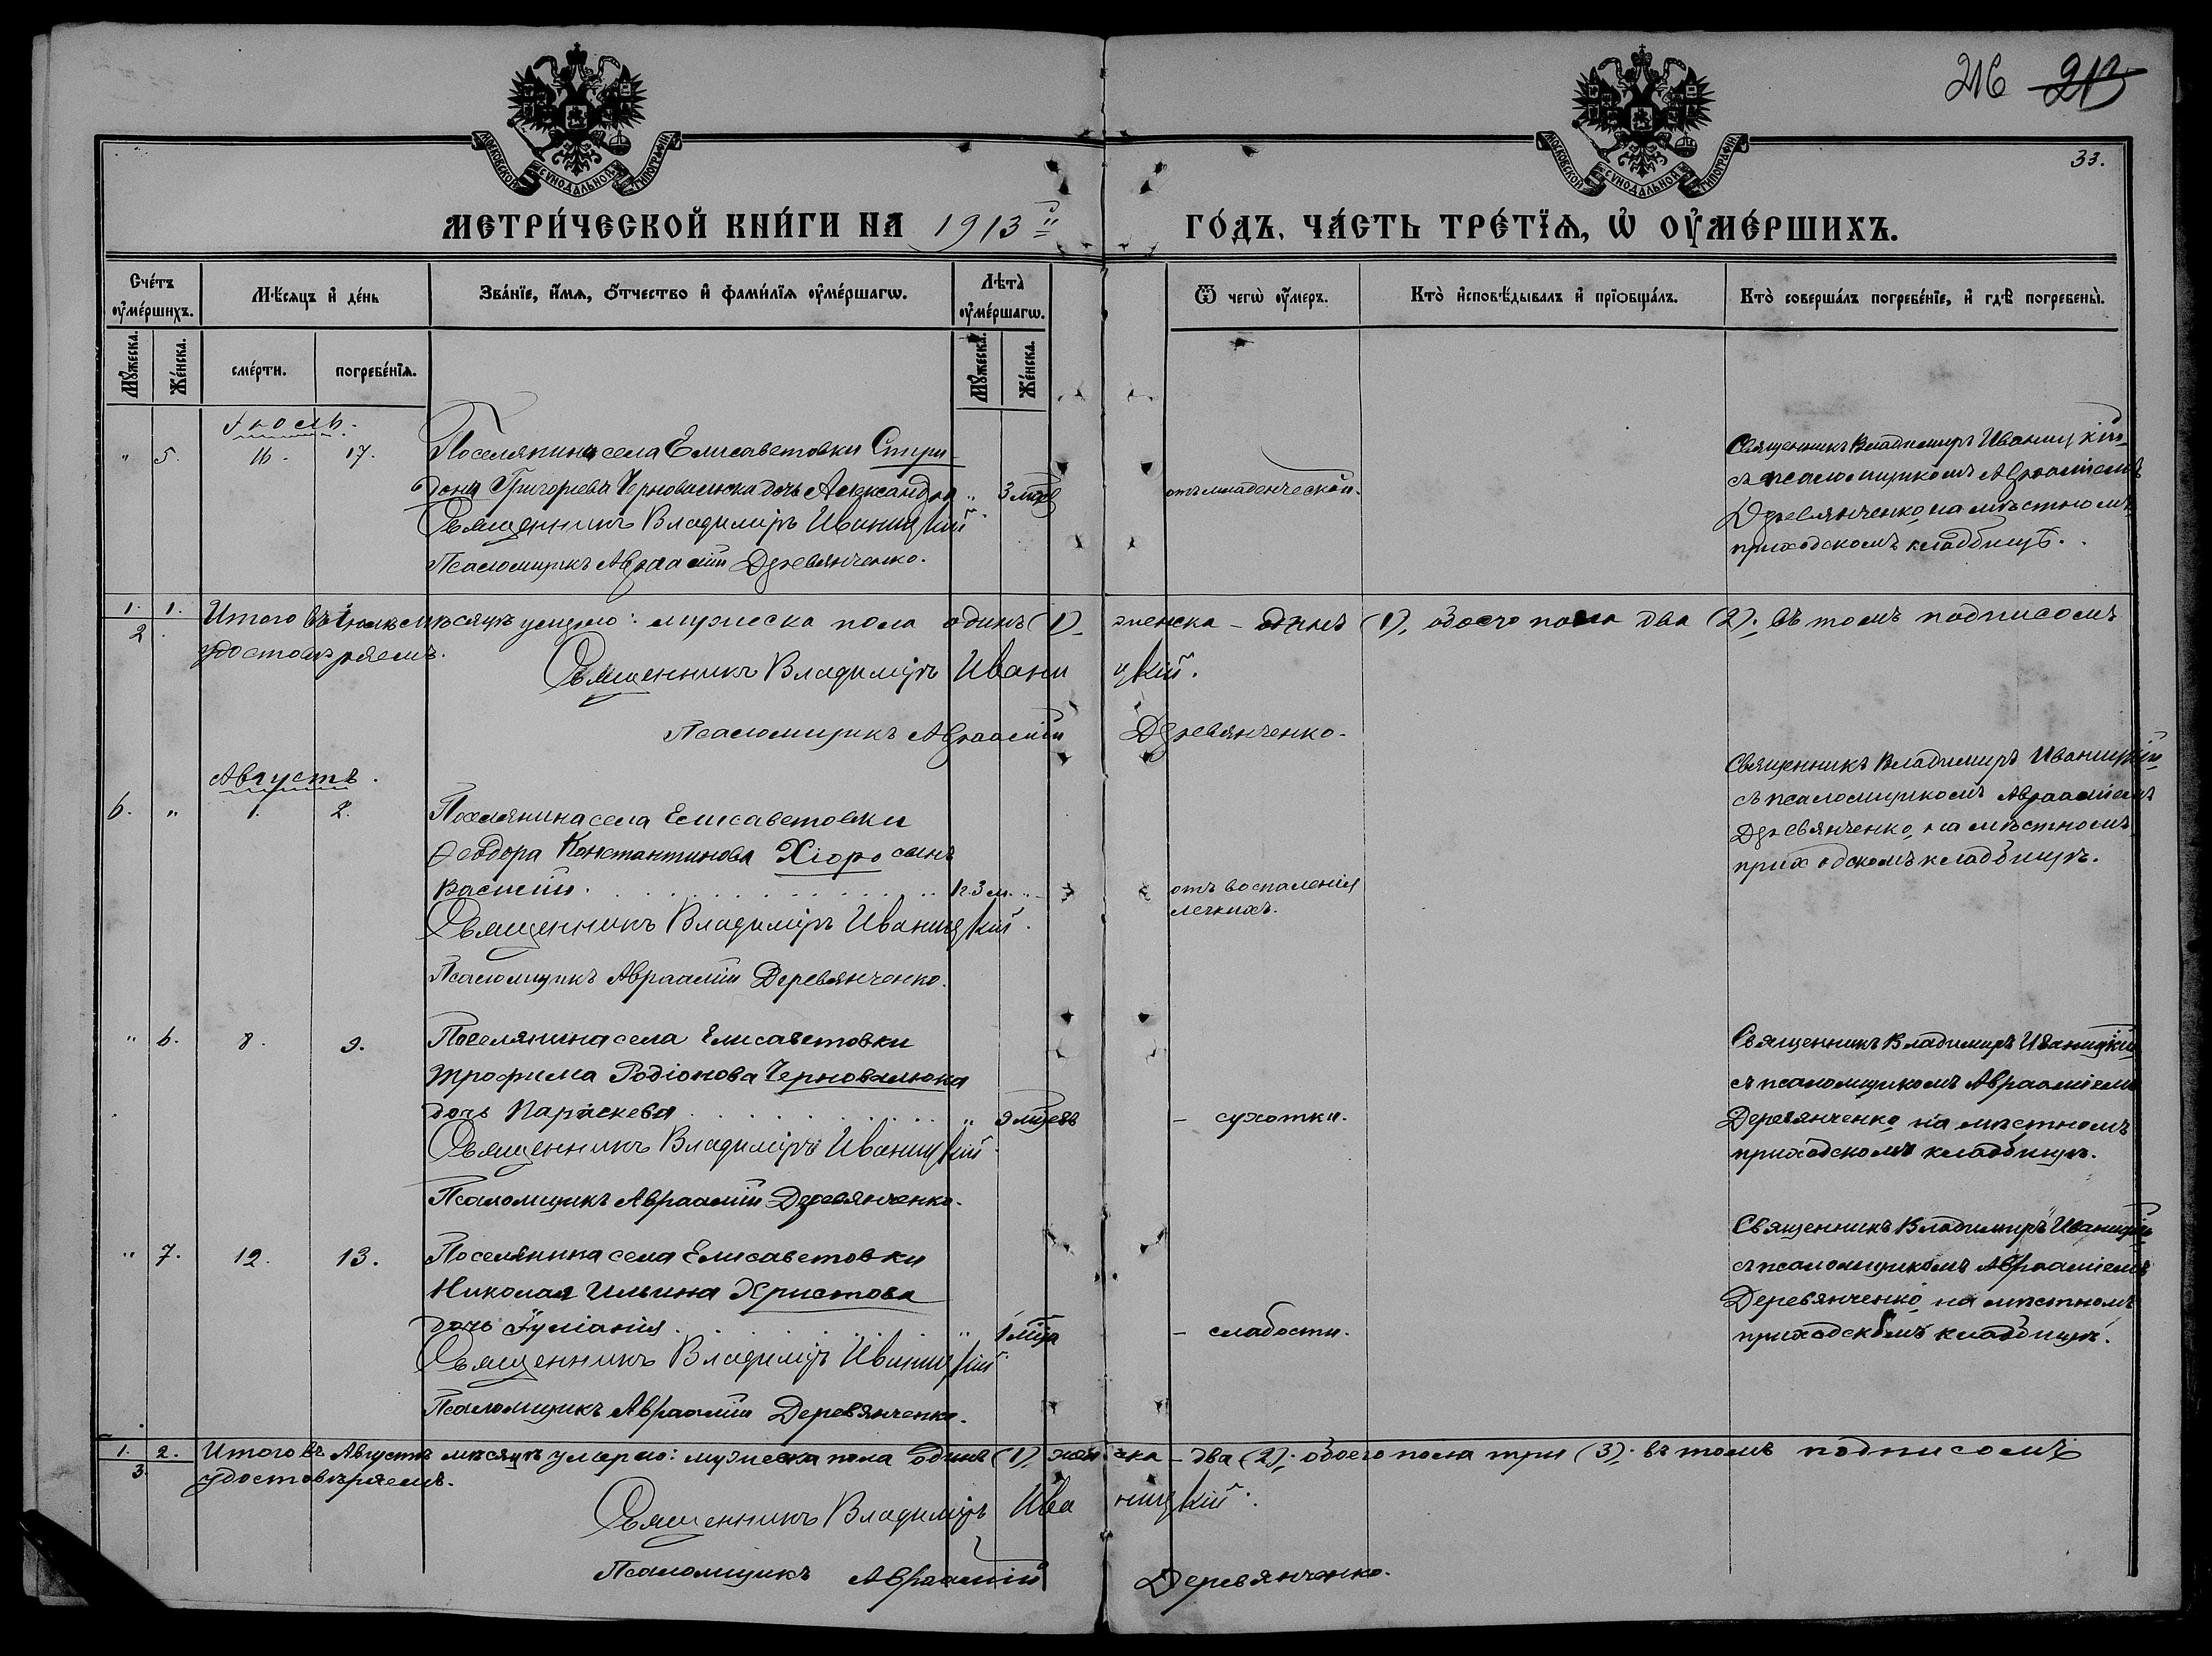 216 213
33.
МОСКОВСКОЙ СУНОДАЛЬНОЙ ТИПОГРАФІИ
МОСКОВСКОЙ СУНОДАЛЬНОЙ ТИПОГРАФІИ
МЕТРИ́ЧЕСКОЙ КНИ́ГИ НА 1913й ГО́ДЪ, ЧА́СТЬ ТРЕ́ТЇѦ, Ѡ҆ ОУ҆МЕ́РШИХЪ.
Сче́тъ оу҆ме́ршихъ.
Мѣ́сяцъ и҆ де́нь
Зва́нїе, и҆́мѧ, ѻ҆́тчество и҆ фами́лїѧ оу҆ме́ршагѡ.
Лѣта̀ оу҆ме́ршагѡ.
Ѿ чегѡ̀ оу҆́меръ.
Кто̀ и҆сповѣ́дывалъ и҆ прїѡбща́лъ.
Кто̀ соверша́лъ погребе́нїе, и҆ гдѣ̀ погребены̀.
Мꙋ́жеска. Же́нска. сме́рти. погребе́нїѧ. Мꙋ́жеска. Же́нска.
Іюль.
" 5. 16. 17. Поселянина села Елисаветовки Спири
дона Григорьева Черновалюка дочь Александра " 3 мѣс. отъ младенческой.
Священникъ Владиміръ Иваницкій
Псаломщикъ Авраамій Деревянченко.
Священникъ Владимиръ Иваницкій
съ псаломщикомъ Аврааміемъ
Деревянченко, на мѣстномъ
приходскомъ кладбищѣ.
1. 1. 2. Итого въ Іюлѣ мѣсяцѣ умерло: мужеска пола одинъ (1), женска – одна (1), обоего пола два (2); въ томъ подписомъ
удостовѣряемъ.
Священникъ Владиміръ Иваницкій.
Псаломщикъ Авраамій Деревянченко.
Августъ.
6. " 1. 2. Поселянина села Елисаветовки
Ѳеодора Константинова Хіоро сынъ
Василій 1 г. 3 м. " отъ воспаленія
легкихъ.
Священникъ Владиміръ Иваницкій.
Псаломщикъ Авраамій Деревянченко.
Священникъ Владимиръ Иваницкій
съ псаломщикомъ Аврааміемъ
Деревянченко, на мѣстномъ
приходскомъ кладбищѣ.
" 6. 8. 9. Поселянина села Елисаветовки
Трофима Родіонова Черновалюка
дочь Параскева " 9 мѣсяц. – сухотки.
Священникъ Владиміръ Иваницкій
Псаломщикъ Авраамій Деревянченко.
Священникъ Владимиръ Иваницкій
съ псаломщикомъ Аврааміемъ
Деревянченко, на мѣстномъ
приходскомъ кладбищѣ.
" 7. 12. 13. Поселянина села Елисаветовки
Николая Ильина Христова
дочь Іуліанія " 1 мѣсяца – слабости.
Священникъ Владиміръ Иваницкій
Псаломщикъ Авраамій Деревянченко.
Священникъ Владимиръ Иваницкій
съ псаломщикомъ Аврааміемъ
Деревянченко, на мѣстномъ
приходскомъ кладбищѣ.
1. 2. 3. Итого въ Августѣ мѣсяцѣ умерло: мужеска пола одинъ (1) женска – два (2); обоего пола три (3); въ томъ подписомъ
удостовѣряемъ.
Священникъ Владиміръ Иваницкій.
Псаломщикъ Авраамій Деревянченко.